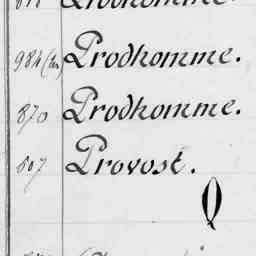 Prodhomme.
984 (bis) Prodhomme.
870 Prodhomme.
807 Provost.
Q